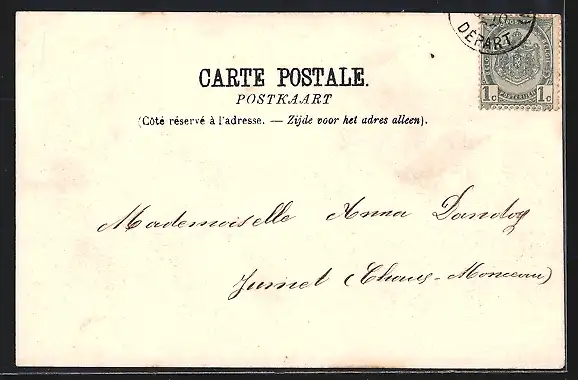 DÉPART
1c 1c
CARTE POSTALE.
POSTKAART
(Côté réservé à l'adresse. — Zijde voor het adres alleen).
Mademoiselle Anna Dandoy
Jumet (Chaus-Monceau)